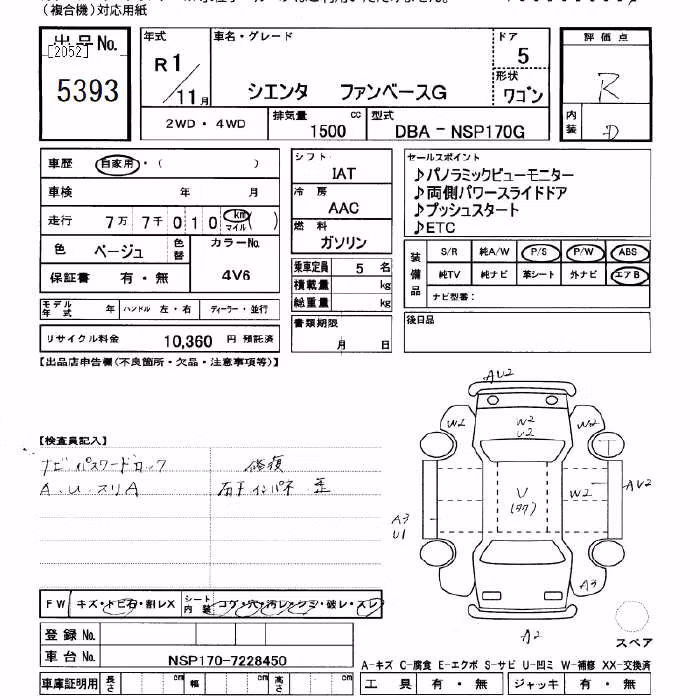 （複合機）対応用紙
出品No.
[2052]
5393
年式
R1/11月
車名・グレード
シエンタ ファンベースG
ドア
5
形状
ワゴン
評価点
R
内装
D
2WD・4WD
排気量
1500 cc
型式
DBA-NSP170G
車歴 自家用・（ ）
車検 年 月
走行 7万7千010 km マイル（ ）
色 ベージュ 色替
カラーNo.
4V6
保証書 有・無
モデル年式 年
ハンドル 左・右
ディーラー・並行
リサイクル料金 10,360 円 預託済
シフト
IAT
冷房
AAC
燃料
ガソリン
乗車定員 5 名
積載量 kg
総重量 kg
書類期限
月 日
セールスポイント
♪パノラミックビューモニター
♪両側パワースライドドア
♪プッシュスタート
♪ETC
装備品
S/R 純A/W P/S P/W ABS
純TV 純ナビ 革シート 外ナビ エアB
ナビ型番：
後日品
【出品店申告欄（不良箇所・欠品・注意事項等）】
【検査員記入】
ナビ パスワードロック 修復
A.U.スリA 右下インパネ 歪
AU2
W2
W2
U2
W2
U
W2
AU2
A3
U1
A3
A2
スペア
FW キズ・トビ石・割レX
シート内装 コゲ・穴・汚レ・シミ・破レ・スレ
登録No.
車台No. NSP170-7228450
車庫証明用 長さ cm 幅 cm 高さ cm
A-キズ C-腐食 E-エクボ S-サビ U-凹ミ W-補修 XX-交換済
工具 有・無 ジャッキ 有・無